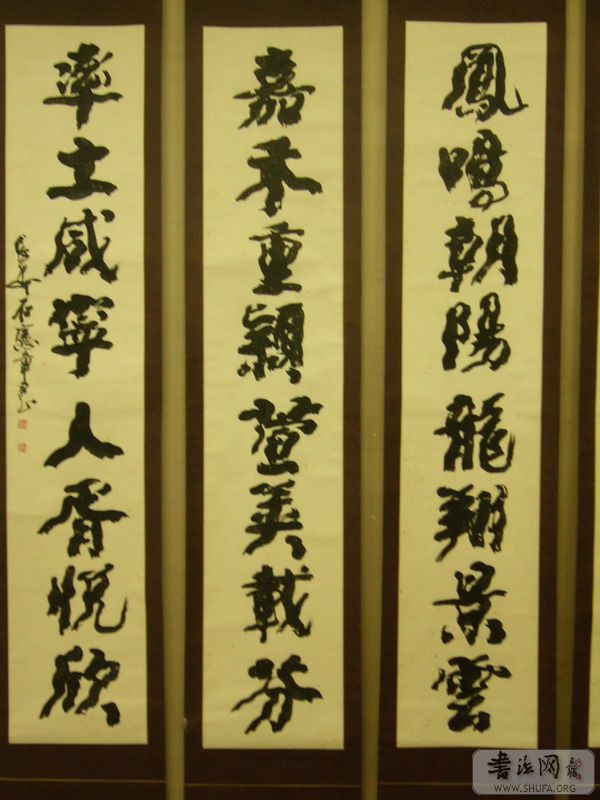 鳳鳴朝陽龍翔景雲
嘉禾重穎蓂莢載芬
率土咸寧人胥悅欣
長安石憲章書
書法网
WWW.SHUFA.ORG